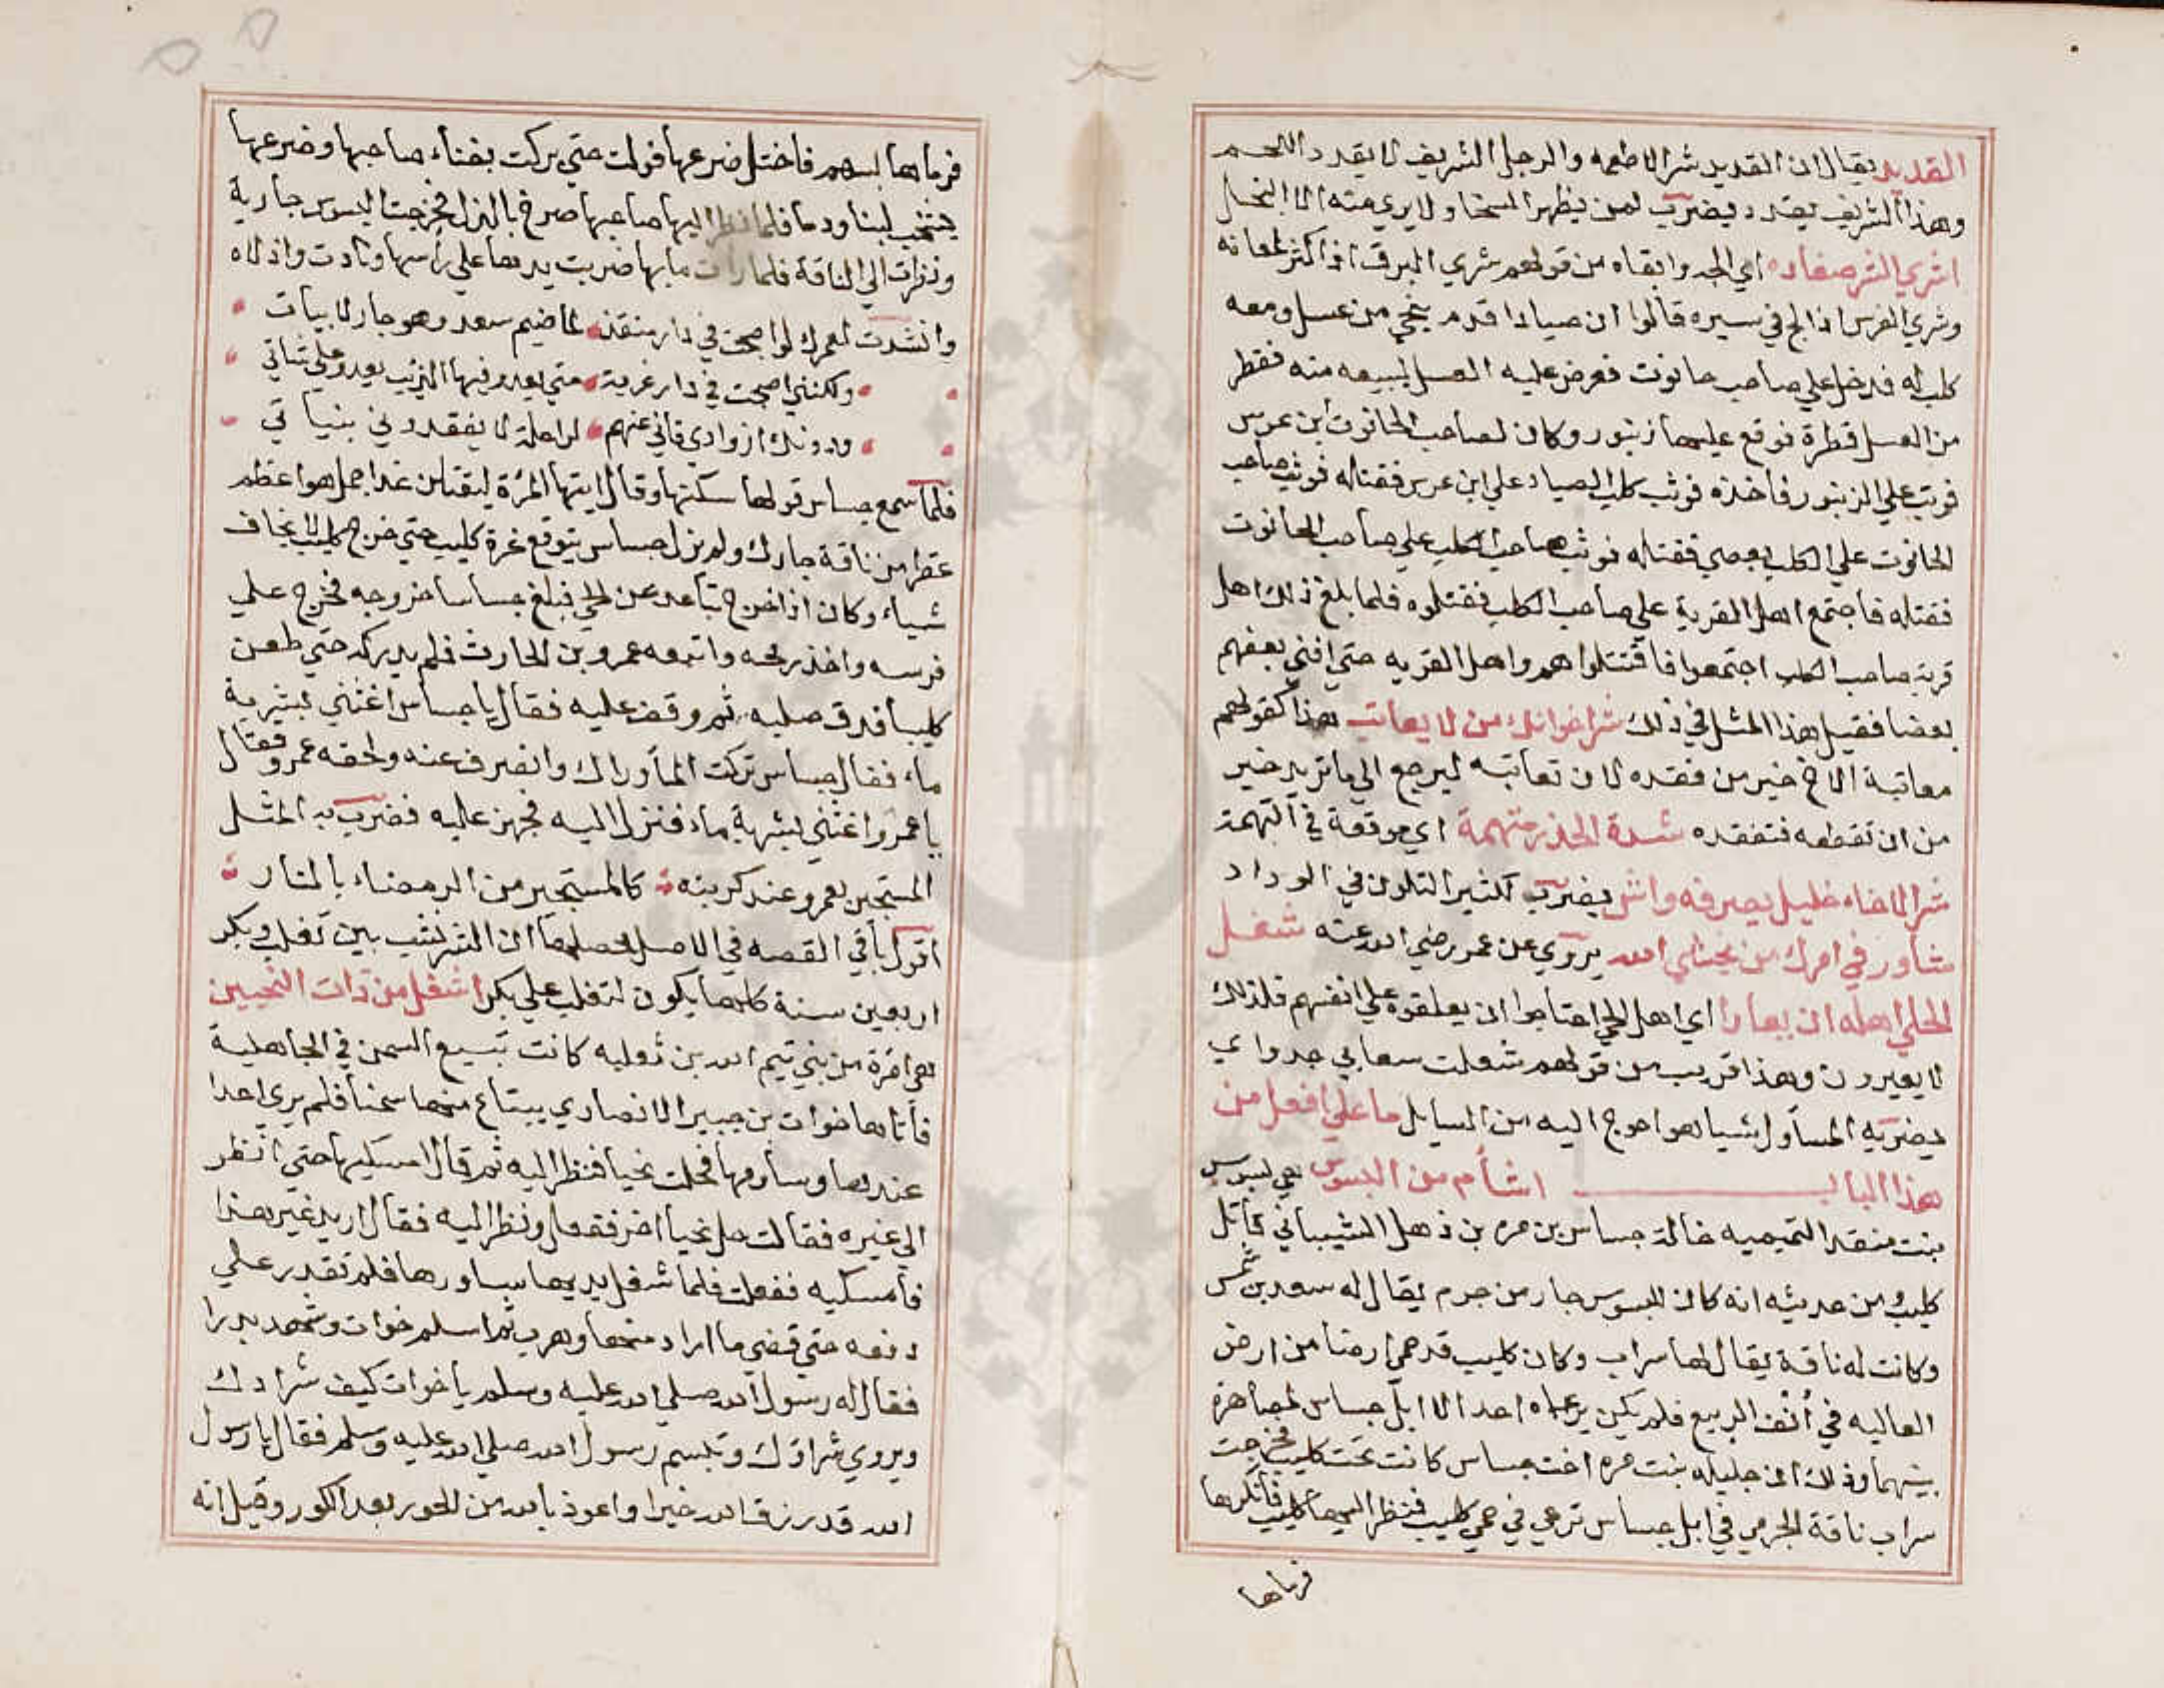 القديد يقال ان القديد شر الاطعمه والرجل الشريف لا يقدد اللحم
وهذا الشريف يقدد يضرب لمن يظهر السخاء ولا يري منه الا البخل
اشري الشر صغاره اي الجه وابقاه من قولهم شري البرق اذا كثر لمعانه
وشري الفرس اذا لج في سيره قالوا ان صيادا قدم بنحي من عسل ومعه
كلب له فدخل علي صاحب حانوت فعرض عليه العسل لبيعه منه فقطر
من العسل قطرة فوقع عليها زنبور وكان لصاحب الحانوت ابن عرس
فوثب علي الزنبور فاخذه فوثب كلب الصياد علي ابن عرس فقتله فوثب صاحب
الحانوت علي الكلب بعصي فقتله فوثب صاحب الكلب علي صاحب الحانوت
فقتله فاجتمع اهل القرية علي صاحب الكلب فقتلوه فلما بلغ ذلك اهل
قرية صاحب الكلب اجتمعوا فاقتتلوا هم واهل القريه حتي افني بعضهم
بعضا فقيل هذا المثل في ذلك شر اخوانك من لا يعاتب هذا كقولهم
معاتبة الاخ خير من فقده لان تعاتبه ليرجع الي ما تريد خير
من ان تقطعه فتفقده شدة الحذر متهمة اي موقعة في التهمة
شر الاخلاء خليل يصرفه واش يضرب لكثير التلون في الوداد
شاور في امرك من يخشي الله يروي عن عمر رضي الله عنه شغل
الحلي اهله ان يعارا اي اهل الحلي احتاجوا ان يعلقوه علي انفسهم فلذلك
لا يعيرون وهذا قريب من قولهم شغلت سعابي جدواي
يضربه المسأول شيا هو احوج اليه من السايل ما علي افعل من
هذا الباب اشأم من البسوس هي بسوس
بنت منقد التميميه خالة جساس بن مره بن ذهل الشيباني قاتل
كليب ومن حديثه انه كان للبسوس جار من جرم يقال له سعد بن شمس
وكانت له ناقة يقال لها سراب وكان كليب قد حمي ارضا من ارض
العاليه في أنف الربيع فلم يكن يرعاه احد الا ابل جساس لمصاهرة
بينهما وذلك ان جليله بنت مره اخت جساس كانت تحت كليب فخرجت
سراب ناقة الجرمي في ابل جساس ترعي في حمي كليب فنظر اليها كليب فانكرها
فرماها
فرماها بسهم فاختل ضرعها فولت حتي بركت بفناء صاحبها وضرعها
يشخب لبنا ودما فلما نظر اليها صاحبها صرخ بالذل فخرجت البسوس جارية
ونظرت الي الناقة فلما رات ما بها ضربت يدها علي رأسها ونادت واذلاه
وانشدت لعمرك لو اصبحت في دار منقذ لما ضيم سعد وهو جار لابيات
ولكنني اصبحت في دار غربة متي يعد فيها الذئب يعد علي شاتي
ودونك ازوادي فاني عنهم لراحلة لا يفقدوني بنياتي
فلما سمع جساس قولها سكتها وقال ايتها المرة ليقتلن غدا جمل هو اعظم
عقرا من ناقة جارك ولم يزل جساس يتوقع غرة كليب حتي خرج كليب لا يخاف
شياء وكان اذا خرج تباعد عن الحي فبلغ جساسا خروجه فخرج علي
فرسه واخذ رمحه واتبعه عمرو بن الحارث فلم يدركه حتي طعن
كليبا فدق صلبه ثم وقف عليه فقال يا جساس اغثني بشربة
ماء فقال جساس تركت الما وراك وانصرف عنه ولحقه عمرو فقال
يا عمرو اغثني بشربة ماء فنزل اليه فجهز عليه فضرب به المثل
المستجير بعمرو عند كربته كالمستجير من الرمضاء بالنار
اقول باقي القصه في الاصل محصلها ان الشر نشب بين تغلب وبكر
اربعين سنة كلها يكون لتغلب علي بكر اشغل من ذات النحيين
هي امرة من بني تيم الله بن ثعلبه كانت تبيع السمن في الجاهلية
فأتاها خوات بن جبير الانصاري يبتاع منها سمنا فلم يري احدا
عندها وساومها فحلت نحيا فنظر اليه ثم قال امسكيها حتي انظر
الي غيره فقالت حل نحيا اخر ففعل ونظر اليه فقال اريد غير هذا
فأمسكيه ففعلت فلما شغل يديها ساورها فلم تقدر علي
دفعه حتي قضي ما اراد منها وهرب ثم اسلم خوات وشهد بدرا
فقال له رسول الله صلي الله عليه وسلم يا خوات كيف شرادك
ويروي شراؤك وتبسم رسول الله صلي الله عليه وسلم فقال يا رسول
الله قد رزق الله خيرا واعوذ بالله من الحور بعد الكور وقيل انه